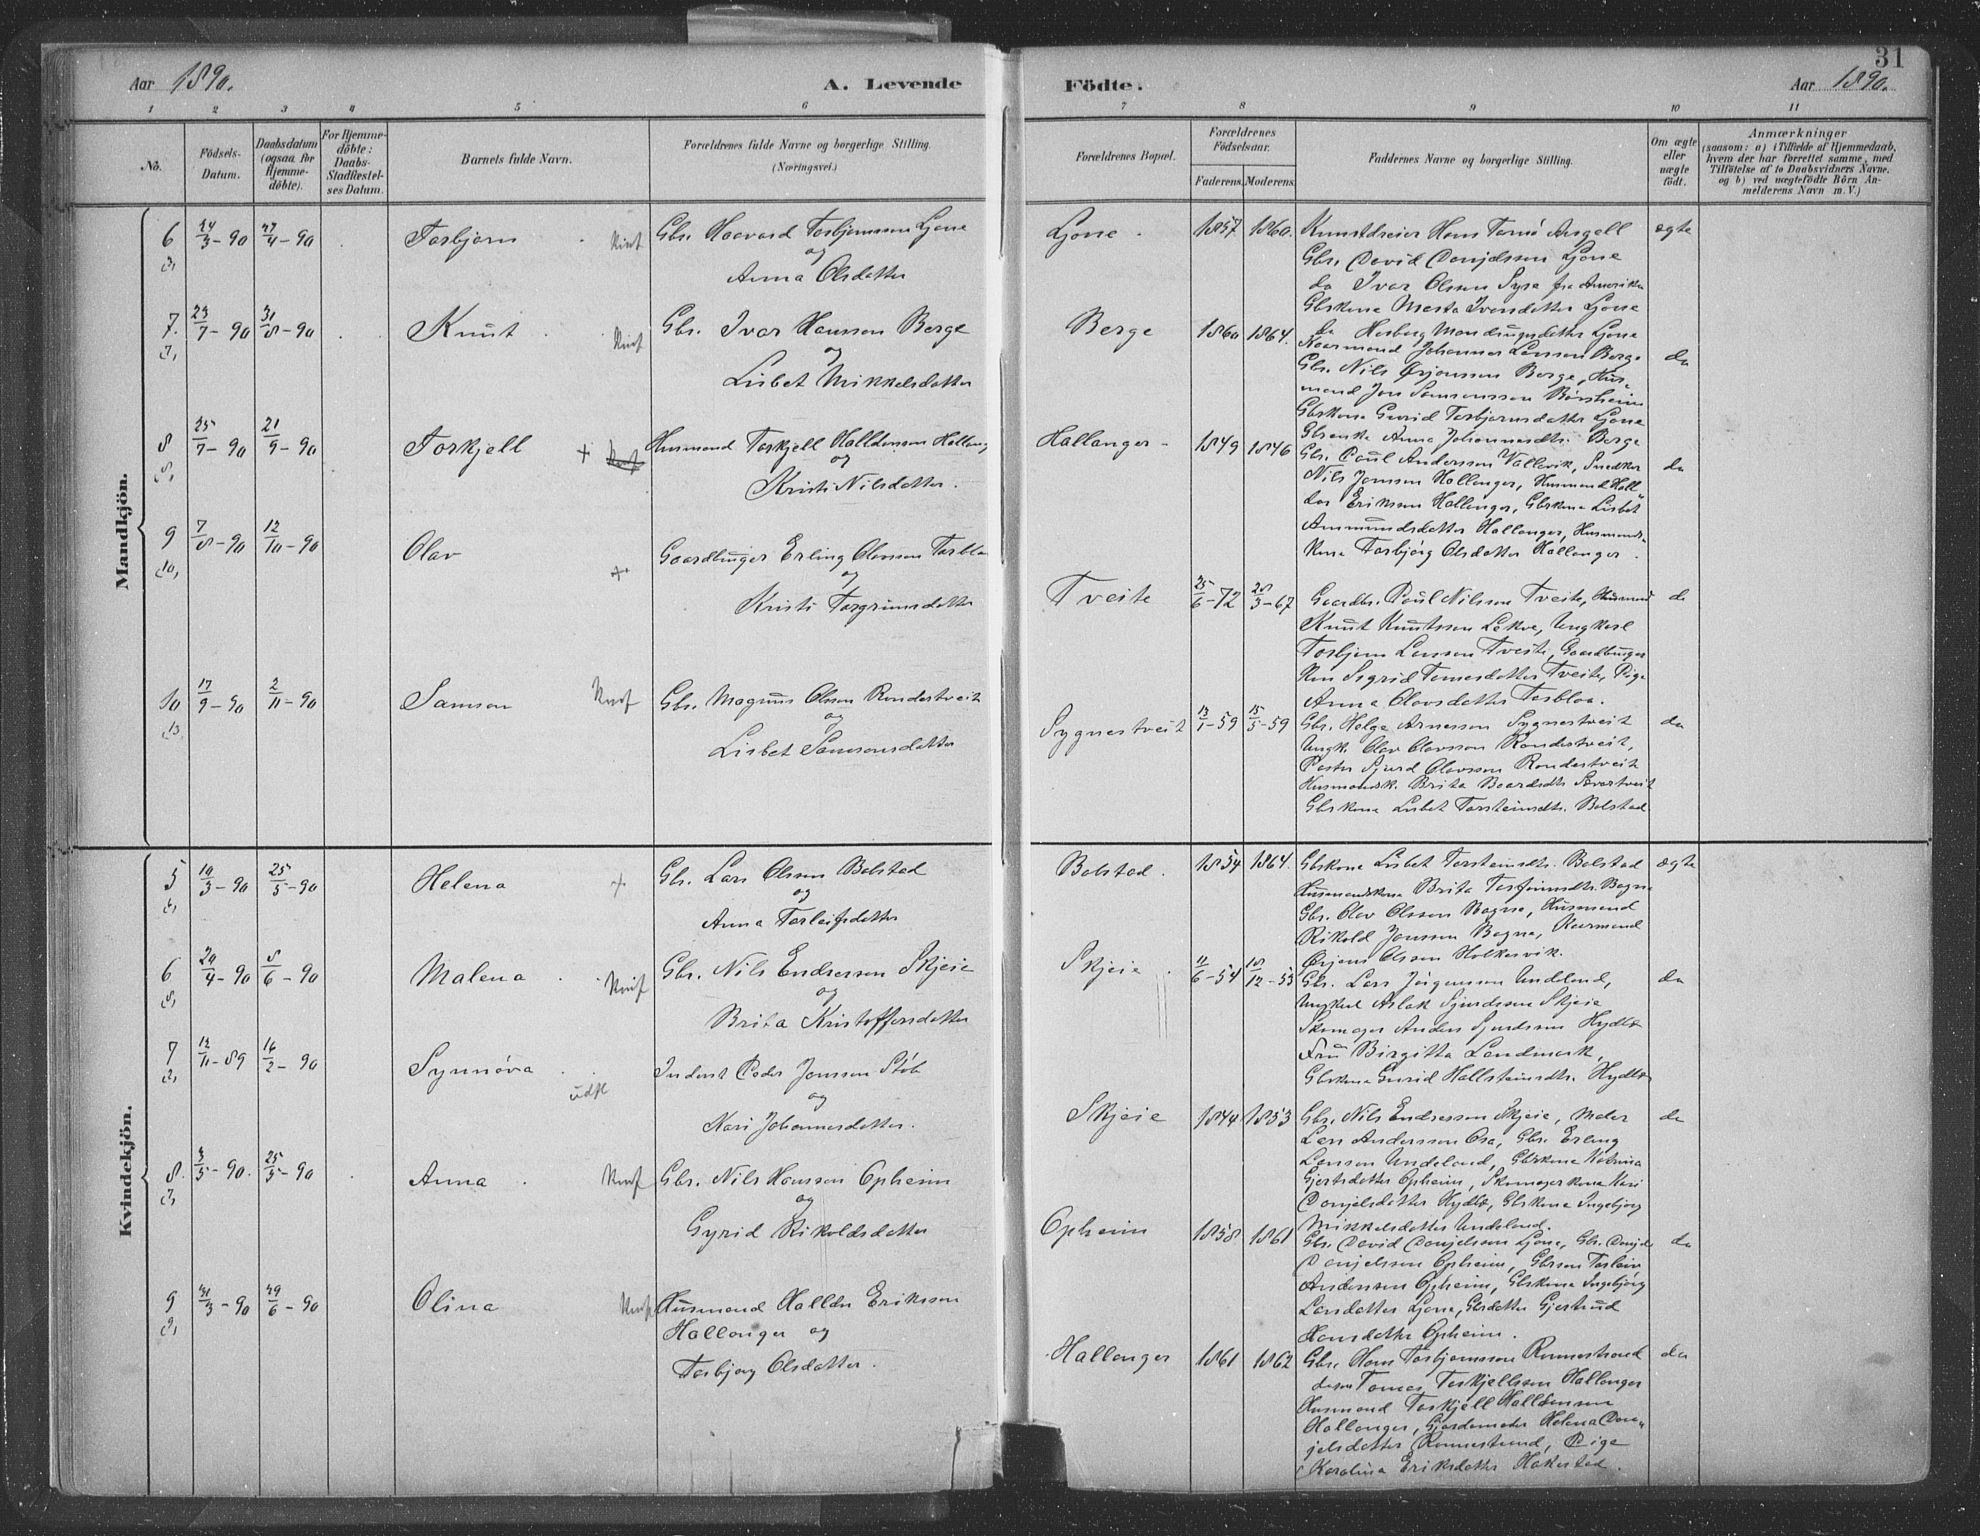 31
Aar 1890.
A. Levende
Födte.
Aar 1890.
1 2 3 4 5 6 7 8 9 10 11
No.
Födsels-Datum.
Daabsdatum (ogsaa for Hjemme-döbte).
For Hjemme-döbte: Daabs-Stadfæstel-ses Datum.
Barnets fulde Navn.
Forældrenes fulde Navne og borgerlige Stilling.
(Næringsvei.)
Forældrenes Bopæl.
Forældrenes Födselsaar.
Faderens. Moderens.
Faddernes Navne og borgerlige Stilling.
Om ægte eller uægte födt.
Anmærkninger
(saasom: a) i Tilfælde af Hjemmedaab,
hvem der har forrettet samme, med
Tilföielse af to Daabsvidners Navne,
og b) ved uægtefödte Börn An-
melderens Navn m. V.)
Mandkjön.
6 24/3 - 90 27/4 - 90 Torbjørn Gbr. Haavard Torbjørnssen Ljone
og
Anna Olsdatter
Ljone 1857 1860. Kunstdreier Hans Tornö Angell ægte
Gbr. David Danjelssen Ljone
do Ivar Olssen Syse fra Amerika
Gbrkone Marta Ivarsdatter Ljone
7. 23/7 - 90 31/8 - 90 Knut Gbr. Ivar Hanssen Berge
og
Lisbet Mikkelsdatter
Berge 1860 1864. Johannes Larssen Berge do
Gbr. Nils Ørjanssen Berge, Hus-
mand Jon Samsonssen Børsheim
Gbrkone Gurid Torbjørnsdatter Ljone
Anna Johannesdtr. Berge
8 25/7 - 90 21/9 - 90 Torkjell + Husmand Torkjell Halldorssen Hallang
og
Kristi Nilsdatter.
Hallanger 1849 1846 Gbr. Paul Anderssen Vallavik, Snedker do
Nils Janssen Hallanger, Husmand Hall
dor Erikssen Hallanger, Gbrkone Lisbet
Ammundsdatter Hallanger, Husmands-
kone Torbjørg Olsdatter Hallanger.
9 7/8 - 90 12/10 - 90 Olav + Gaardbruger Erling Olavssen Torblaa
og
Kristi Torgrimsdatter
Tveite 25/6 - 72 28/3 - 67 Gaardbr. Paul Nilssen Tveite, Husmand do
Knut Knutssen Lekve, Ungkarl
Torbjørn Larssen Tveite, Gaardbruger
kon Sigrid Tomesdatter Tveite, Pige
Anna Olavsdatter Torblaa.
10 17/9 - 90 2/11 - 90 Samson Gbr. Magnus Olssen Rondestveit
og
Lisbet Samsonsdatter
Sygnestveit 13/1 - 59 15/5 - 59 Gbr. Helge Arnessen Sygnestveit do
Ungk. Olav Olavssen Rondestveit,
Sjurd Olavssen Rondestveit
Husmandsk. Brita Baardsdtr.
Gbrkone Lisbet Torsteinsdtr. Bolstad
Kvindekjön.
5 10/3 - 90 25/5 - 90 Helena + Gbr. Lars Olssen Bolstad
og
Anna Torleifsdatter
Bolstad. 1854 1864. Gbrkone Lisbet Torsteinsdtr. Bolstad ægte
Husmandskone Brita Torfinnsdtr. Bagne
Gbr. Olav Olssen Bagne, Husmand
Rikold Janssen Bagne, Kaarmand
Ørjans Olssen Holkesvik.
6 20/4 - 90 8/6 - 90 Malena Gbr. Nils Endressen Skjeie
og
Brita Kristoffersdatter
Skjeie 11/6 - 54 18/12 - 53 Gbr. Lars Jörgenssen Undeland, do
Ungkarl Aslak Sjurdssen Skjeie
Skomager Anders Sjurdssen Hydle
Fru Birgitta Landmark,
Gbrkone Gurid Hallsteinsdtr. Hydle
7 12/11 - 89 16/2 - 90 Synnöva udfl Inderst Peder Janssen Støb
og
Kari Johannesdatter.
Skjeie 1844 1853 Gbr. Nils Endressen Skjeie, Maler do
Lars Anderssen Osa, Gbr. Erling
Larssen Undeland, Gbrkone Katrina
Gjertsdatter Opheim, Skomagerkone Kari
Danjelsdatter Hydle, Gbrkone Ingebjørg
Mikkelsdatter Undeland.
8. 3/5 - 90. 25/5 - 90 Anna Gbr. Nils Hanssen Opheim
og
Gyrid Rikoldsdatter
Opheim 1858 1861 Gbr. David Danjelssen Ljone, Gbr. Danjel do
Danjelssen Opheim, Gbrsøn Torleiv
Anderssen Opheim, Gbrkone Ingebjörg
Larsdatter Ljone, Gbrdatter Gjertrud
Hansdatter Opheim.
9 31/3 - 90 29/6 - 90 Olina Husmand Halldor Erikssen
Hallanger og
Torbjørg Olsdatter.
Hallanger 1861 1862 Gbr. Hans Torbjørnssen Ronnestrand do
Tomes Torkjellssen Hallanger
Husmand Torkjell Halldorssen
Hallanger, Gjordemoder Helena Dan-
jelsdatter Ronnestrand, Pige
Karolina Eriksdatter Hakestad.